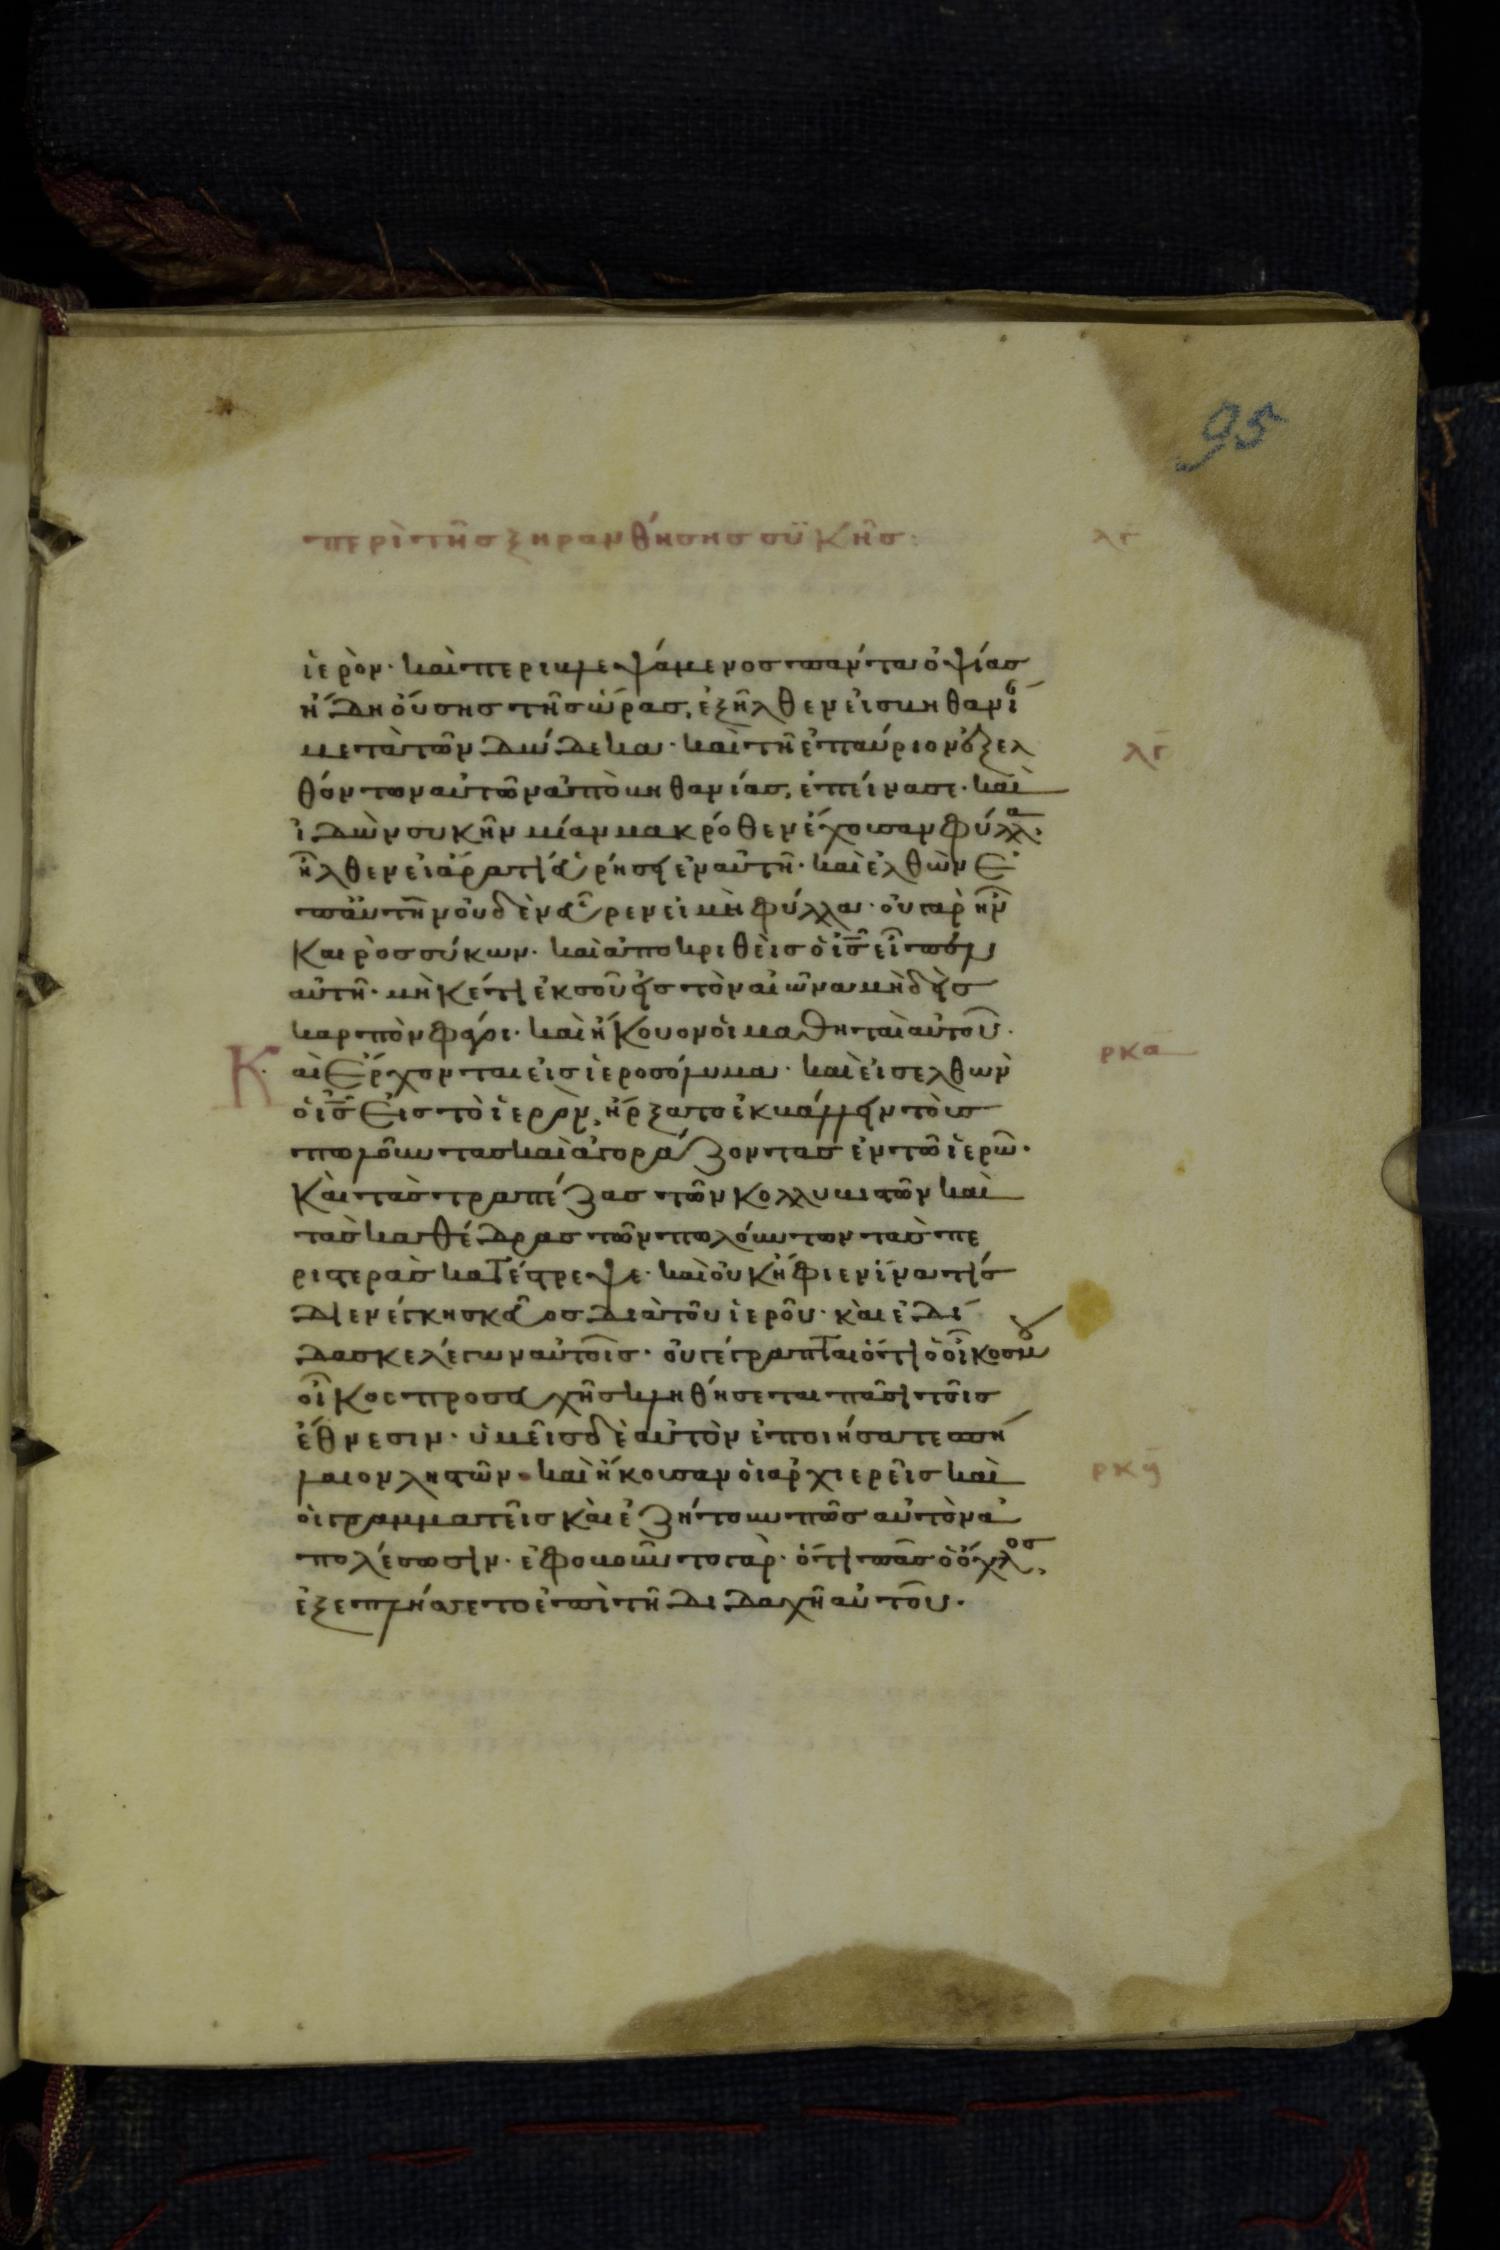 95
περὶ τῆς ξηρανθήσης συκῆς: λγ
ἱερὸν· καὶ περιβλεψάμενος πάντα ὀψίας
ἤδη οὔσης τῆς ὥρας, ἐξῆλθεν εἰς βηθανί
μετὰ τῶν δώδεκα· καὶ τῆ ἐπαύριον ἐξελ λγ
θόντων αὐτῶν ἀπὸ βηθανίας, ἐπείνασε· καὶ
ἰδὼν συκῆν μίαν μακρόθεν ἔχουσαν φύλλα·
ἦλθεν εἰ ἄρα τι εὑρήσει ἐν αὐτῆ· καὶ ἐλθὼν ἐ
π' αὐτὴν οὐδὲν εὗρεν εἰ μὴ φύλλα· οὐ γὰρ ἦν
καιρὸς σύκων· καὶ ἀποκριθεὶς ὁ ις εἶπεν
αὐτῆ· μηκέτι ἐκ σοῦ εἰς τὸν αἰῶνα μηδεὶς
καρπὸν φάγοι· καὶ ἤκουον οἱ μαθηταὶ αὐτοῦ·
Καὶ ἔρχονται εἰς ἱεροσόλυμα· καὶ εἰσελθὼν ρκα
ὁ ις εἰς τὸ ἱερὸν, ἤρξατο ἐκβάλλειν τοὺς
πωλοῦντας καὶ ἀγοράζοντας ἐν τῶ ἱερῶ·
καὶ τὰς τραπέζας τῶν κολλυβιστῶν καὶ
τὰς καθέδρας τῶν πωλούντων τὰς πε
ριστερὰς κατέστρεψε· καὶ οὐκ ἤφιεν ἵνα τίς
διενέγκη σκεῦος διὰ τοῦ ἱεροῦ· καὶ ἐδί
δασκε λέγων αὐτοῖς· οὐ γέγραπται ὅτι ὁ οἶκος μου
οἶκος προσευχῆς κληθήσεται πᾶσι τοῖς
ἔθνεσιν· ὑμεῖς δὲ αὐτὸν ἐποιήσατε σπή
λαιον ληστῶν· καὶ ἤκουσαν οἱ ἀρχιερεῖς καὶ ρκγ
οἱ γραμματεῖς καὶ ἐζήτουν πῶς αὐτὸν ἀ
πολέσωσιν· ἐφοβοῦντο γὰρ· ὅτι πᾶς ὁ ὄχλος,
ἐξεπλήσσετο ἐπὶ τῆ διδαχῆ αὐτοῦ·